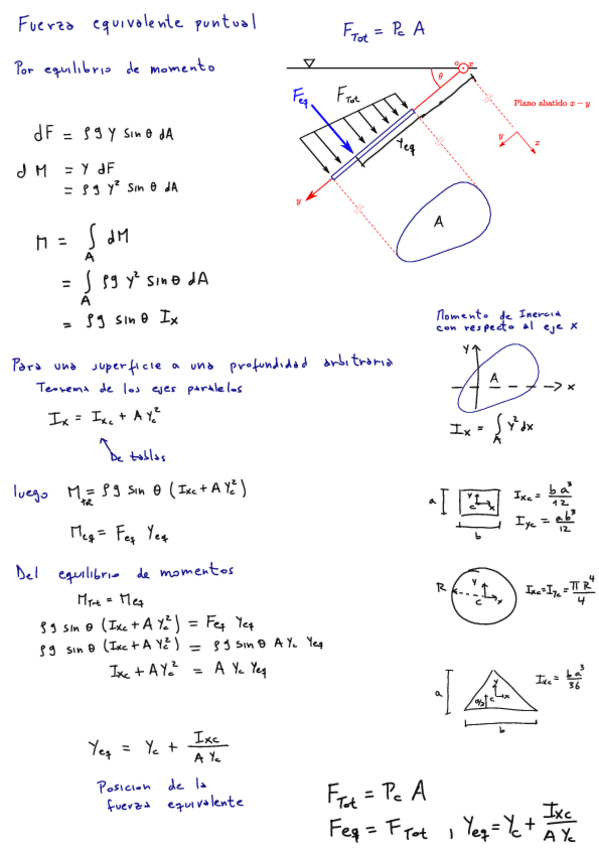 Fuerza equivalente puntual
F_Tot = P_c A
Por equilibrio de momento
o x
θ
F_eq
F_Tot
Plano abatido x − y
y_eq
y
x
y
A
dF = ρg y sin θ dA
dM = y dF
= ρg y² sin θ dA
M = ∫_A dM
= ∫_A ρg y² sin θ dA
= ρg sin θ I_x
Momento de Inercia
con respecto al eje x
y
A
x
I_x = ∫_A y² dx
Para una superficie a una profundidad arbitraria
Teorema de los ejes paralelos
I_x = I_xc + A y_c²
De tablas
luego M_tot = ρg sin θ (I_xc + A y_c²)
M_eq = F_eq y_eq
a
y
c
x
b
I_xc = b a³/12
I_yc = a b³/12
Del equilibrio de momentos
M_Tot = M_eq
ρg sin θ (I_xc + A y_c²) = F_eq y_eq
ρg sin θ (I_xc + A y_c²) = ρg sin θ A y_c y_eq
I_xc + A y_c² = A y_c y_eq
R
y
c
x
I_xc = I_yc = π R⁴/4
a
y
a/3
c
x
b
I_xc = b a³/36
y_eq = y_c + I_xc/(A y_c)
Posicion de la
fuerza equivalente
F_Tot = P_c A
F_eq = F_Tot , y_eq = y_c + I_xc/(A y_c)